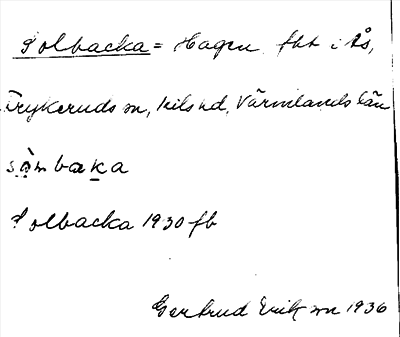 Solbacka = Hagen fht i Ås,
Frykeruds sn, Kils hd, Värmlands län
sòmbaka
Solbacka 1930 fb
Gertrud Eriksson 1936